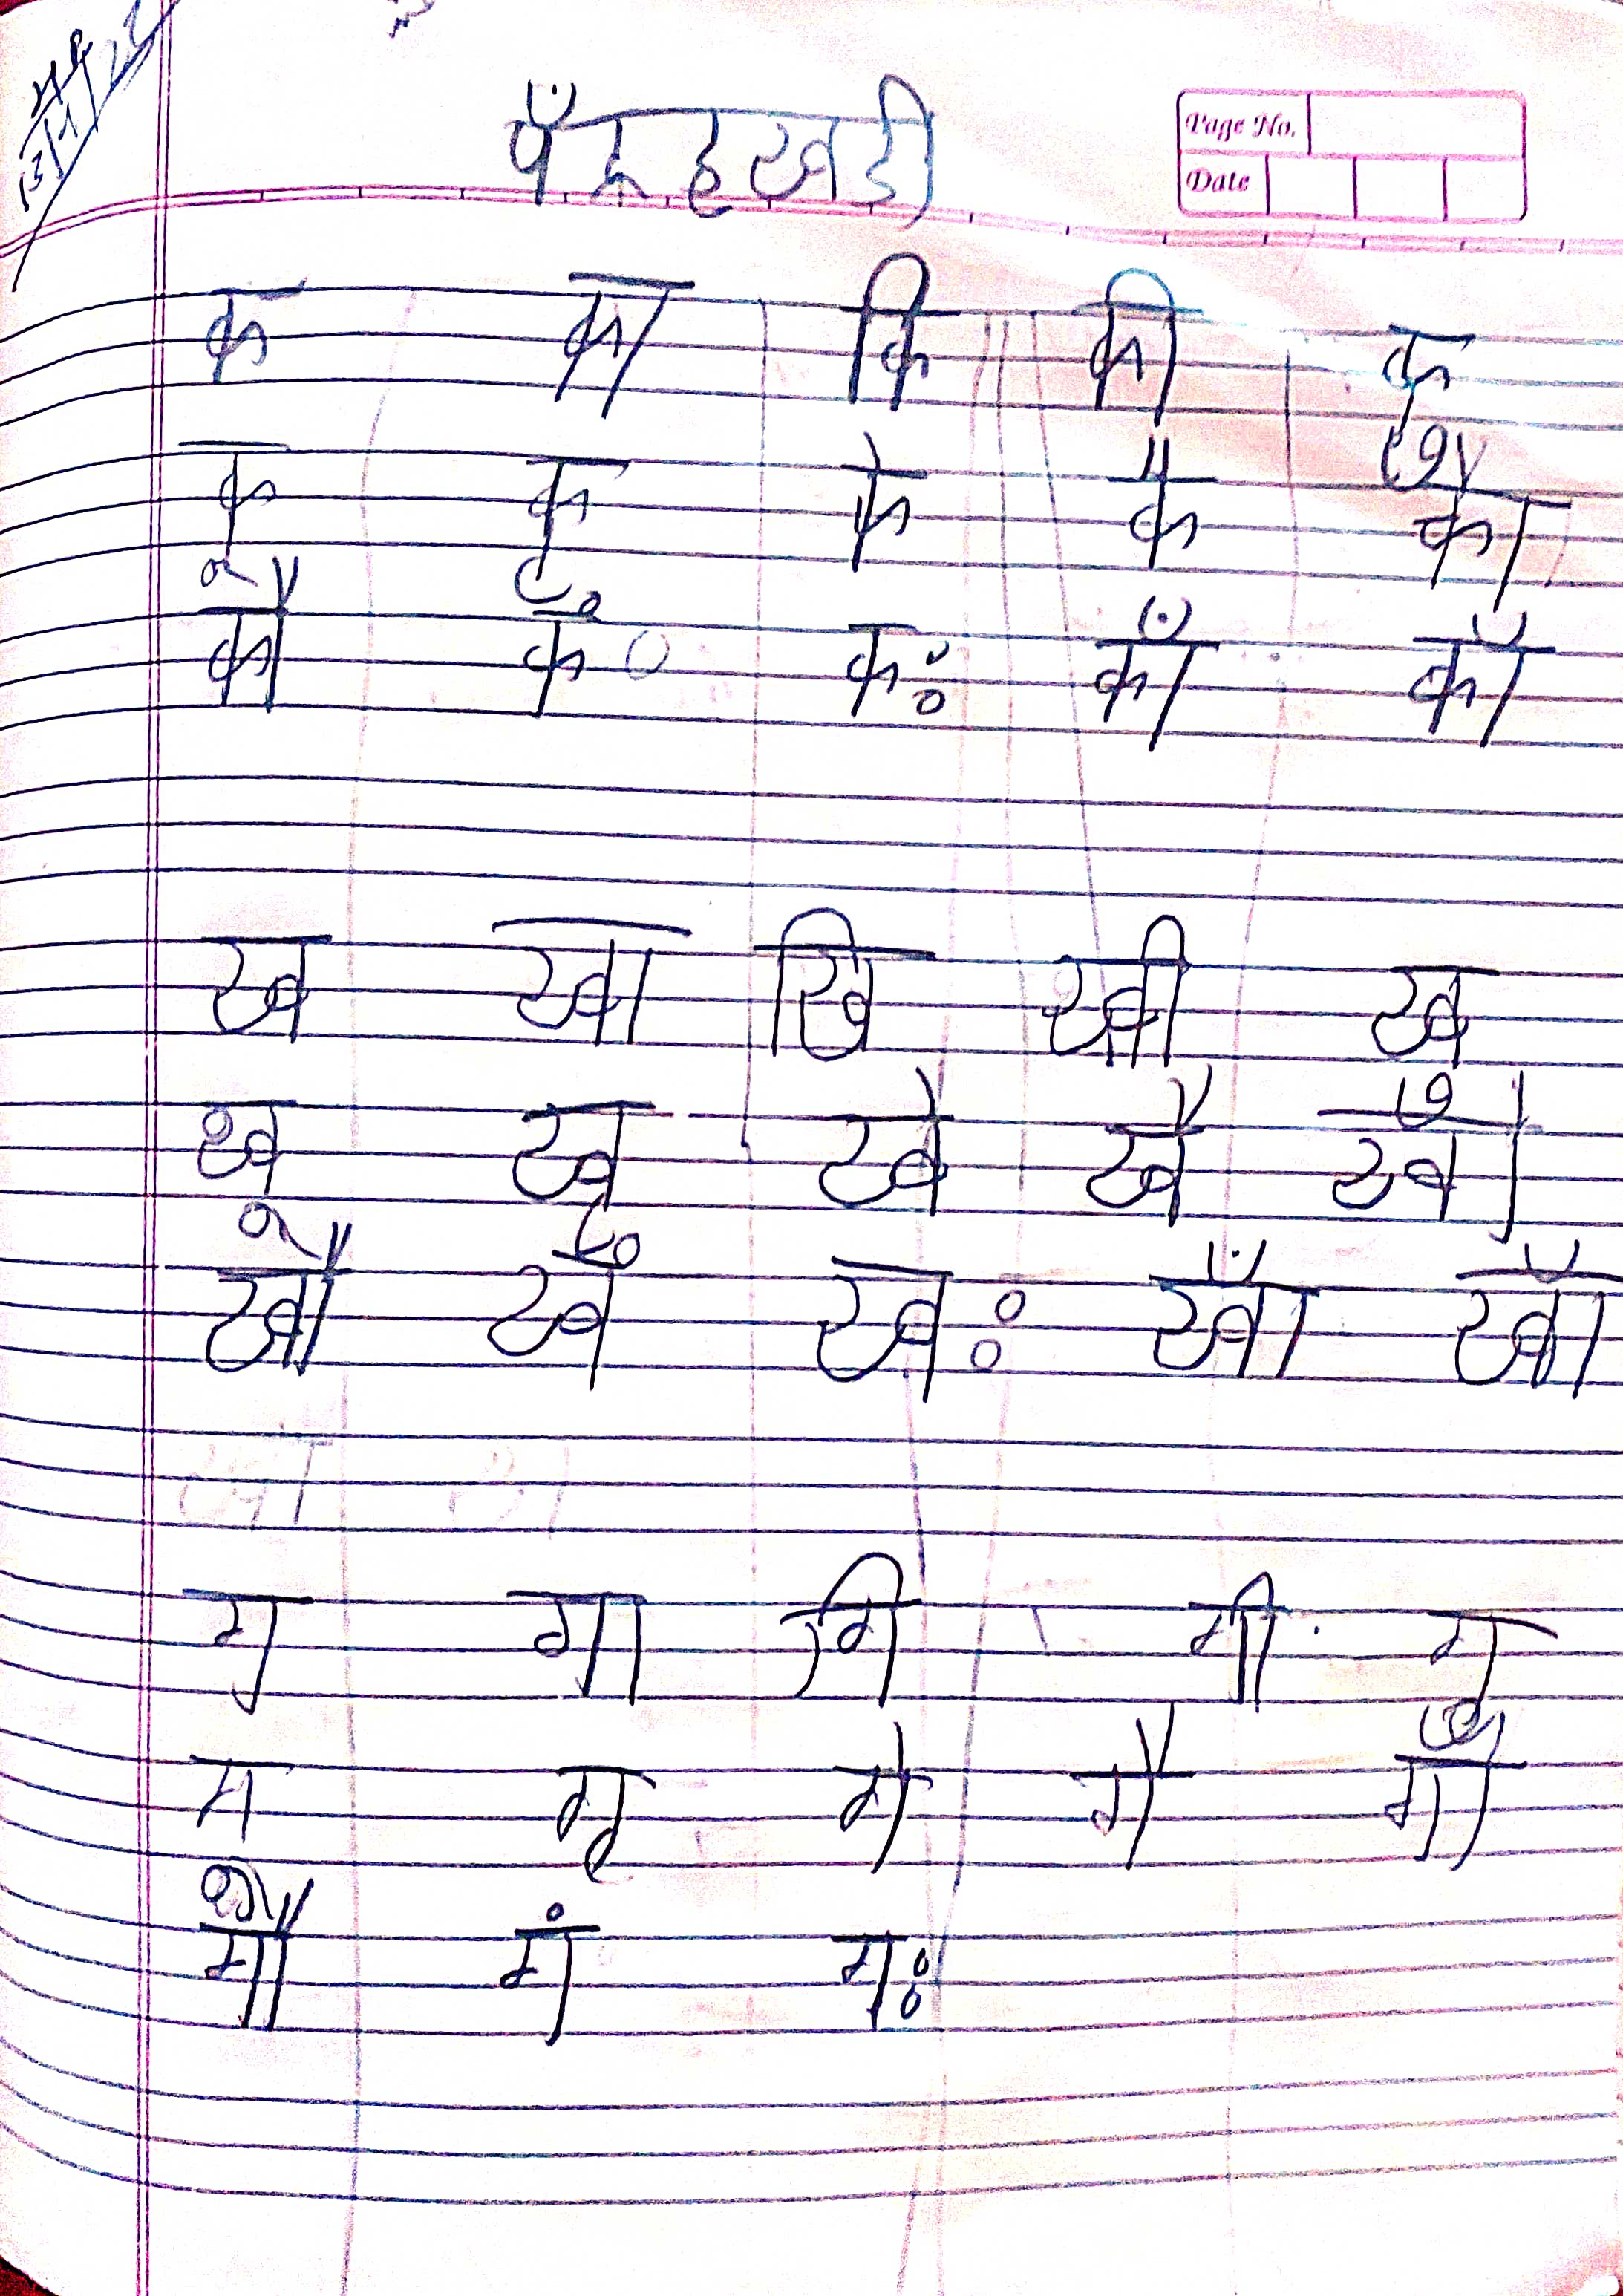 पँद्रहखडी
Page No.
Date
क का कि की कु
कू कृ के कै को
कौ कं कः काॅं काॅ
ख खा खि खी खु
खू खृ खे खै खो
खौ खं खः खाॅं खाॅ
ग गा गि गी गु
गृ गे गै गो
गौ गं गः